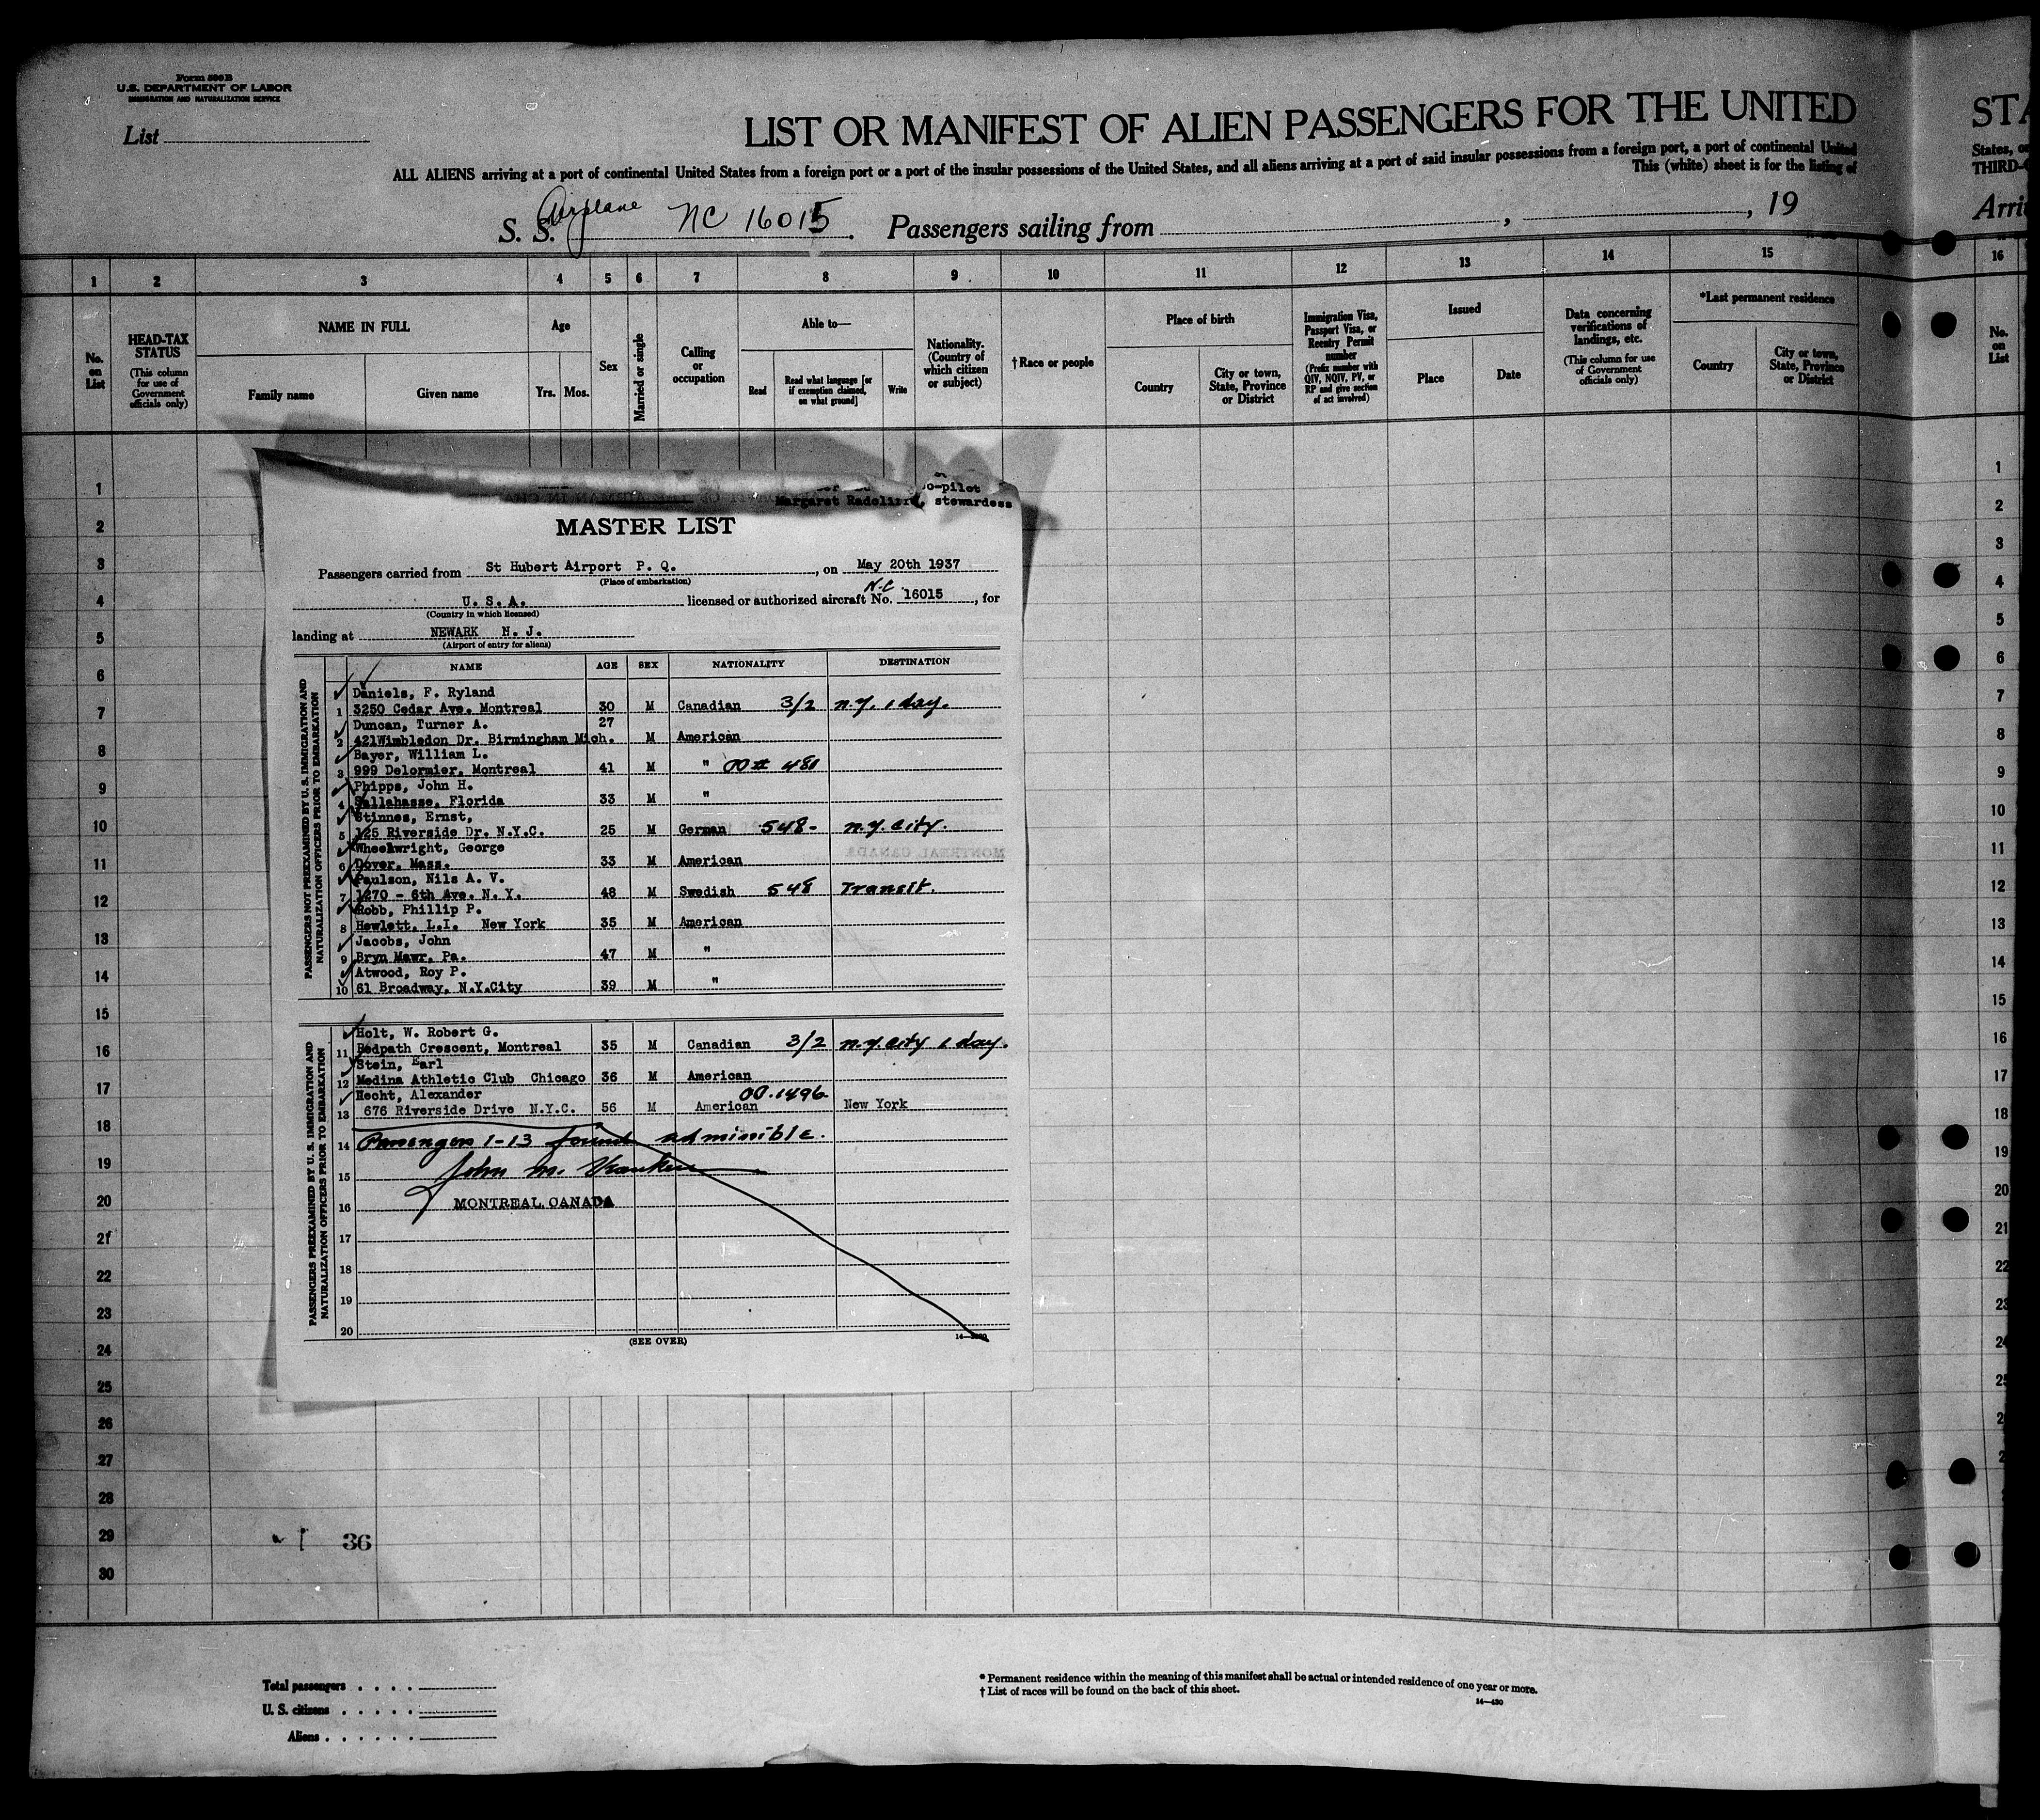 Form 500 B
U.S. DEPARTMENT OF LABOR
IMMIGRATION AND NATURALIZATION SERVICE
List
LIST OR MANIFEST OF ALIEN PASSENGERS FOR THE UNITED
STA
ALL ALIENS arriving at a port of continental United States from a foreign port or a port of the insular possessions of the United States, and all aliens arriving at a port of said insular possessions from a foreign port, a port of continental United
States, or
This (white) sheet is for the listing of
THIRD-C
S. S. Airplane NC 16015. Passengers sailing from , , 19
Arri
1 2 3 4 5 6 7 8 9 10 11 12 13 14 15 16
No. on List
HEAD-TAX STATUS
(This column for use of Government officials only)
NAME IN FULL
Family name
Given name
Age
Yrs. Mos.
Sex
Married or single
Calling or occupation
Able to—
Read
Read what language [or if exemption claimed, on what ground]
Write
Nationality. (Country of which citizen or subject)
† Race or people
Place of birth
Country
City or town, State, Province or District
Immigration Visa, Passport Visa, or Reentry Permit number
(Prefix number with QIV, NQIV, PV, or RP and give section of act involved)
Issued
Place
Date
Data concerning verifications of landings, etc.
(This column for use of Government officials only)
*Last permanent residence
Country
City or town, State, Province or District
No. on List
o-pilot
Margaret Radcliffe, stewardess
MASTER LIST
Passengers carried from St Hubert Airport P. Q. , on May 20th 1937
(Place of embarkation)
N.C.
U. S. A. licensed or authorized aircraft No. 16015 , for
(Country in which licensed)
landing at NEWARK N. J.
(Airport of entry for aliens)
NAME AGE SEX NATIONALITY DESTINATION
PASSENGERS NOT PREEXAMINED BY U. S. IMMIGRATION AND NATURALIZATION OFFICERS PRIOR TO EMBARKATION
Daniels, F. Ryland
1 3250 Cedar Ave. Montreal 30 M Canadian 3/2 n.y. 1 day.
Duncan, Turner A. 27
2 421Wimbledon Dr. Birmingham Mich. M American
Bayer, William L.
3 999 Delormier, Montreal 41 M " OO # 480
Phipps, John H.
4 Tallahasse, Florida 33 M "
Stinnes, Ernst,
5 125 Riverside Dr. N.Y.C. 25 M German 548- n.y. city.
Wheelwright, George
6 Dover, Mass. 33 M American
Paulson, Nils A. V.
7 1270 - 6th Ave. N. Y. 48 M Swedish 548 Transit.
Robb, Phillip P.
8 Hewlett, L.I. New York 35 M American
Jacobs, John
9 Bryn Mawr, Pa. 47 M "
Atwood, Roy P.
10 61 Broadway, N.Y.City 39 M "
PASSENGERS PREEXAMINED BY U. S. IMMIGRATION AND NATURALIZATION OFFICERS PRIOR TO EMBARKATION
Holt, W. Robert G.
11 Redpath Crescent, Montreal 35 M Canadian 3/2 n.y. city 1 day.
Stein, Earl
12 Medina Athletic Club Chicago 36 M American
Hecht, Alexander OO.1496
13 676 Riverside Drive N.Y.C. 56 M American New York
14 Passengers 1-13 found admissible.
15 John M.
16 MONTREAL CANADA
17
18
19
20
(SEE OVER)
1
2
3
4
5
6
7
8
9
10
11
12
13
14
15
16
17
18
19
20
21
22
23
24
25
26
27
28
29
30
36
1
2
3
4
5
6
7
8
9
10
11
12
13
14
15
16
17
18
19
20
21
22
23
24
25
Total passengers . . . .
U. S. citizens . . . . .
Aliens . . . . . .
* Permanent residence within the meaning of this manifest shall be actual or intended residence of one year or more.
† List of races will be found on the back of this sheet.
14—430